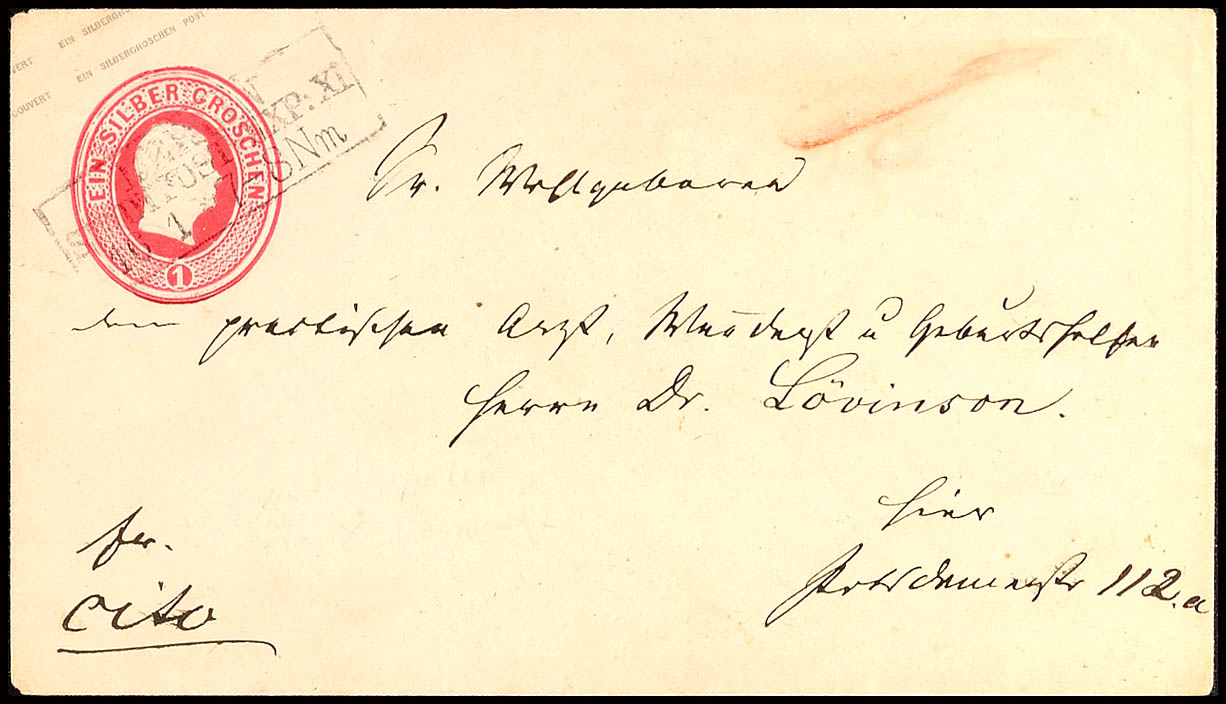 EIN SILBERGRO
VERT EIN SILBERGROSCHEN POST
COUVERT
EIN SILBER GROSCHEN
1
XP: XI
8Nm
1
Sr. Wohlgeboren
dem practischen Arzt, Wundarzt u Geburtshelfer
Herrn Dr. Lövinson.
hier
Potsdamerstr 112.a
fr.
cito